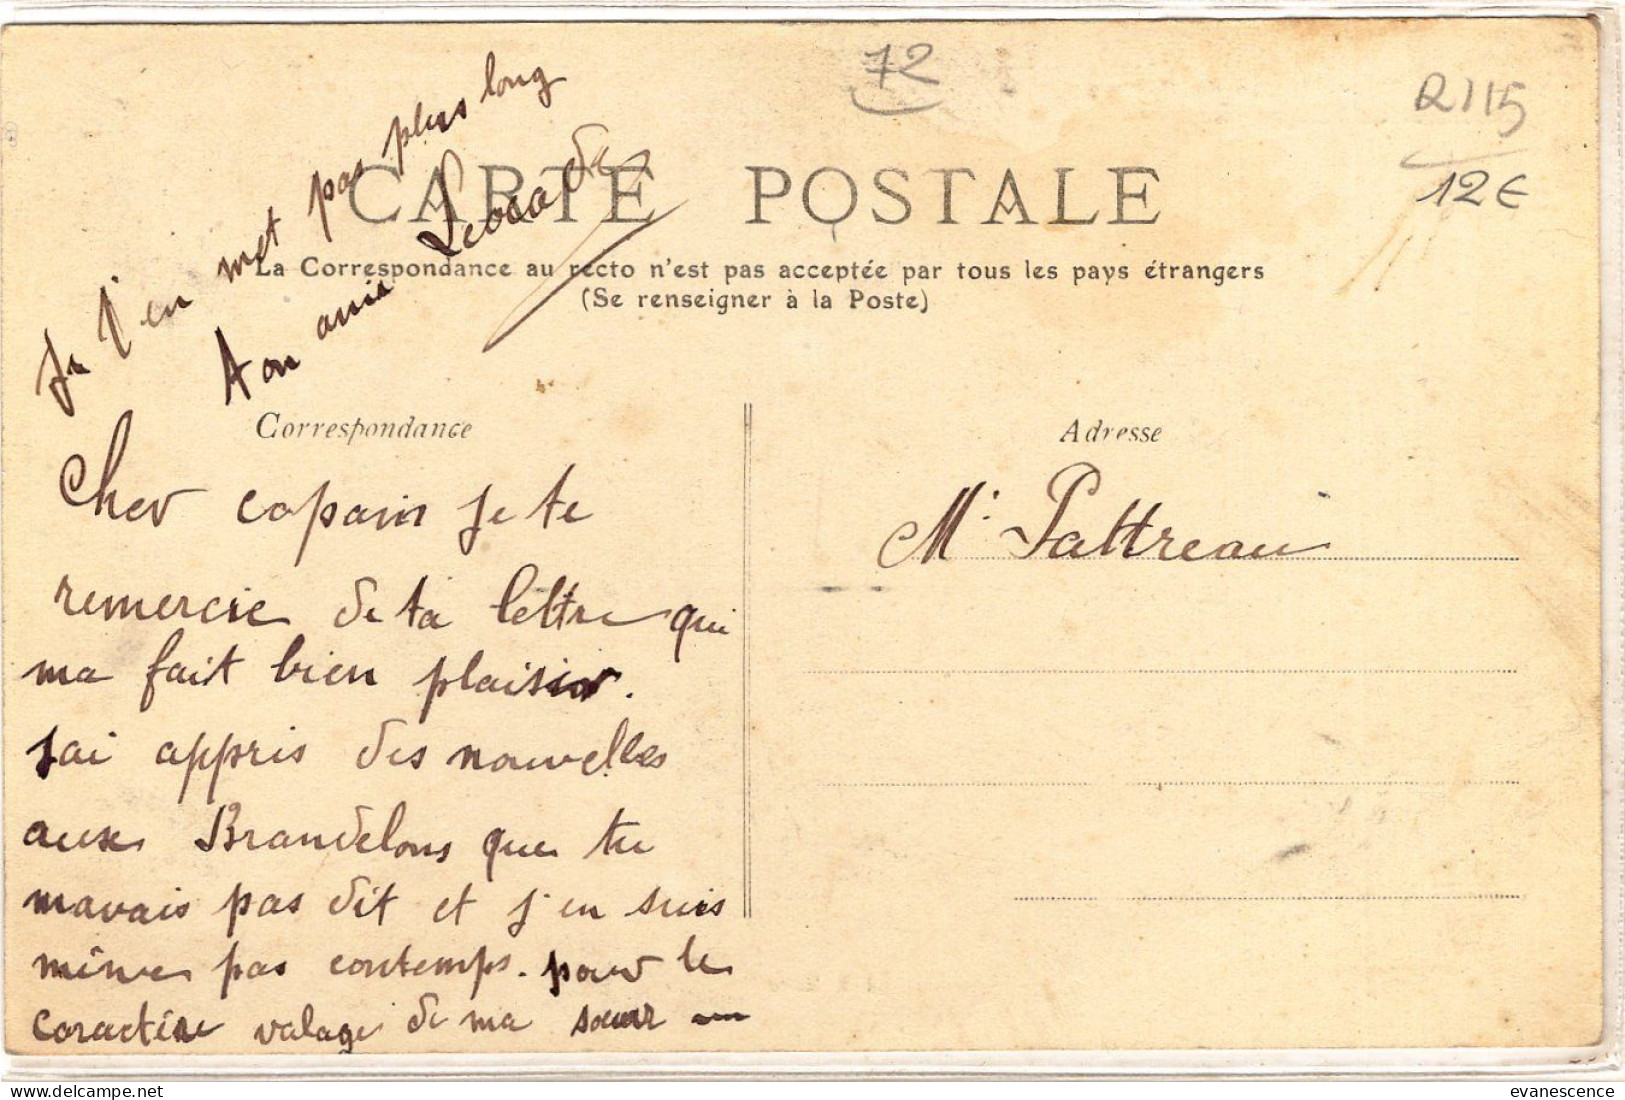 72
R115
12€
Je j'en met pas plus long
Ton amie Leocadie
CARTE POSTALE
La Correspondance au recto n'est pas acceptée par tous les pays étrangers
(Se renseigner à la Poste)
Correspondance
Adresse
Cher copain je te
remercie de ta lettre qui
ma fait bien plaisir.
jai appris des nouvelles
aux Brandelons que tu
mavais pas dit et j'en suis
même pas contemps. pour le
caractère valage de ma sœur
Mr Pattreau
evanescence